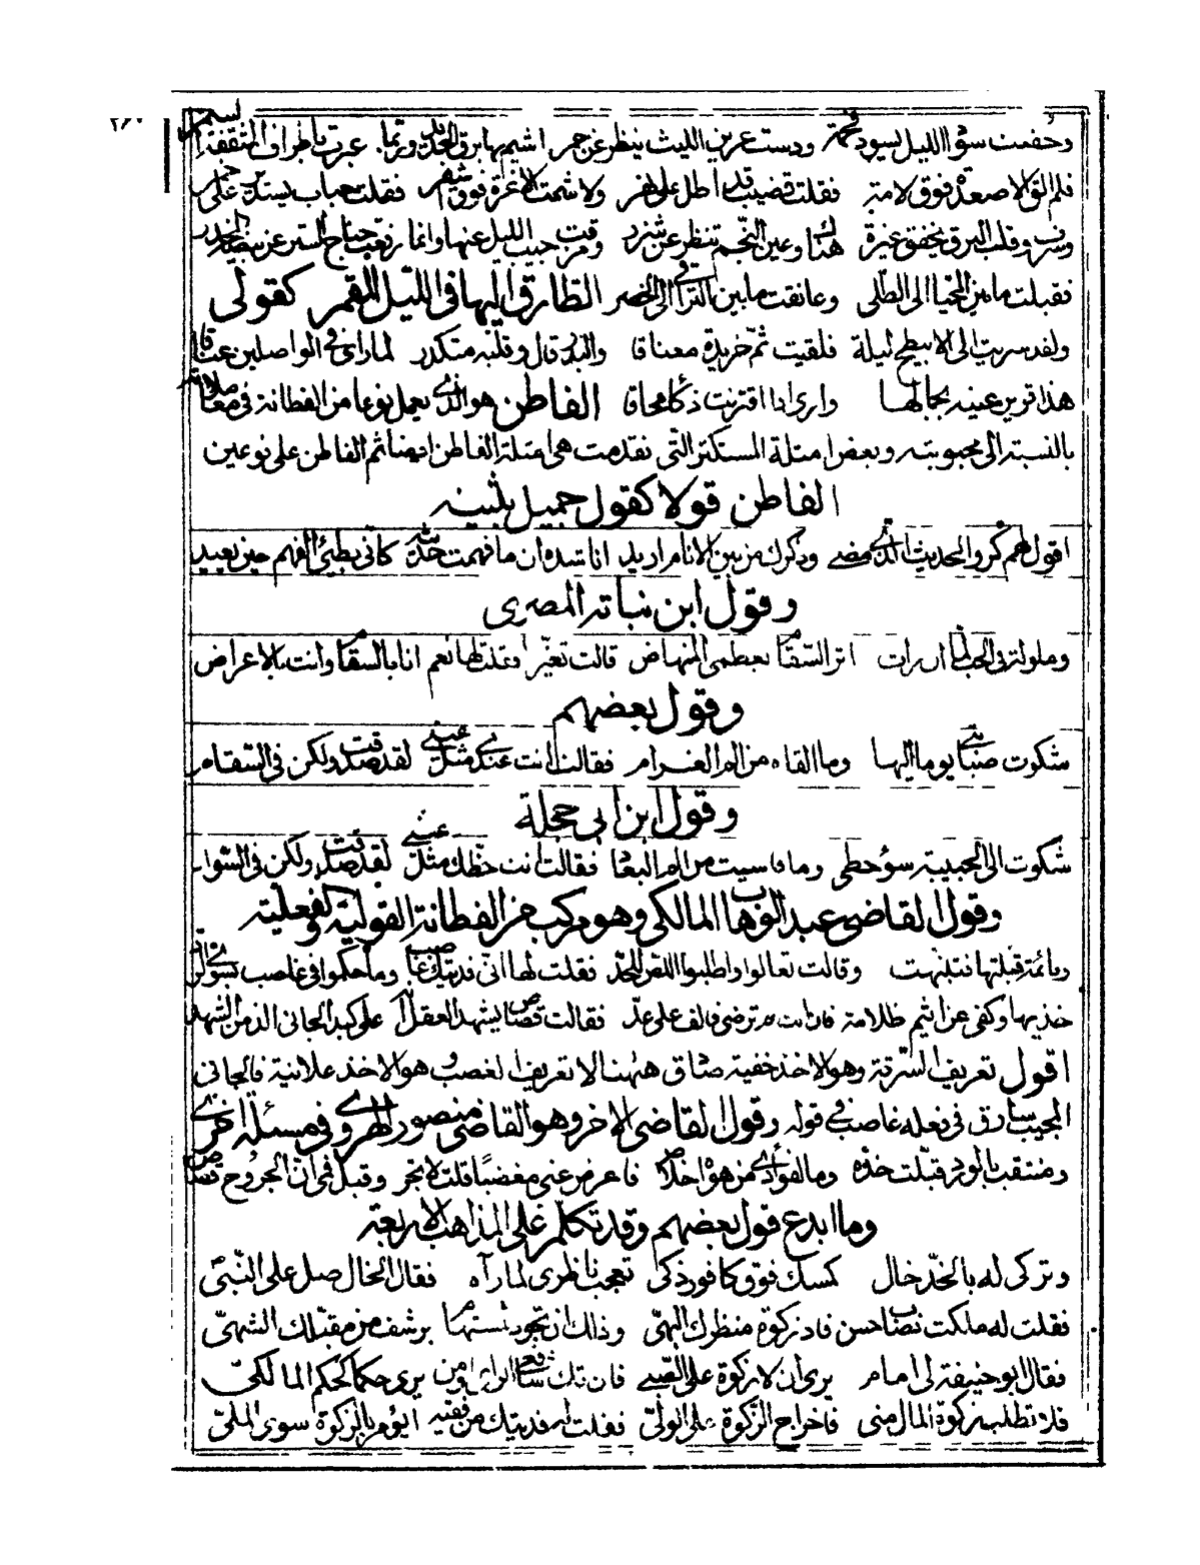 ٢٦٠
وخضت سواد الليل يسود فحمة ودست عرين الليث ينظر عن جمر اشيم بها برق الحديد وربما عبرت باطراف المثقفة السمر
فلم الق الا صعدة فوق لامة فقلت قضيب قد اطل على نهر ولا شمت الا غرة فوق شقر فقلت حباب يستدير على خمر
وسرت وقلب البرق يخفق غيرة هناك وعين النجم تنظر عن شزر وقمت جيب الليل عنها وانما رفعت جناح الستر عن بيضة الخدر
فقبلت ما بين المحيا الى الطلى وعانقت ما بين التراقي الى الخصر الطارق اليها في الليل المقمر كقولي
ولقد سريت الى الابيطح ليلة فلقيت ثم خريدة معناقا والبدر قال وقلبه متكدر لما راى في الواصلين عناقا
هذا قرين عينه بجمالها وارى اذا اقتربت ذكاء محاقا الفاطن هو الذي يعمل نوعا من الفطانة في معاملاته
بالنسبة الى محبوبته وبعض امثلة المستكثر التي تقدمت هي امثلة الفاطن ايضا ثم الفاطن على نوعين
الفاطن قولا كقول جميل بثينه
اقول لهم كروا الحديث الذي مضى وذكرك من بين الانام اريد اناشده ان ما فهمت حديثه كاني بطيئ الفهم حين يعيد
وقول ابن نباته المصرى
وملولة في الحب لما ان رات اثر السقام بعظمى المنهاض قالت تغير ا فقلت لها نعم انا بالسقام وانت بالاعراض
وقول بعضهم
شكوت صبابتي يوما اليها وما القاه من الم الغرام فقالت انت عندي مثل عيني لقد صدقت ولكن في السقام
وقول ابن ابى حجلة
شكوت الى الحبيبة سوء حظى وما قاسيت من الم البعاد فقالت انت حظك مثل عيني لقد صدقت ولكن في السواد
وقول القاضى عبد الوهاب المالكى وهو مركب من الفطانة القولية والفعلية
ونائمة قبلتها فتنبهت وقالت تعالوا واطلبوا اللص للحد فقلت لها انى فديتك غاصب وما حكموا في غاصب بسوى الرد
خذيها وكفى عن اثيم ظلامة فان انت لم ترضى فالف على عد فقالت قصاص يشهد العقل انه على كبد الجانى الذ من الشهد
اقول تعريف السرقة وهو الاخذ خفية صادق ههنا لا تعريف الغصب وهو الاخذ علانية فالجانى
المجيب سارق في فعله غاصب في قوله وقول القاضى الاخر وهو القاضى منصور الهروى في مسئلة اخرى
ومنتقب بالورد قبلت خده وما لفؤادي من هواه خلاص فاعرض عنى مغضبا قلت لا تجر وقبل فمى ان الجروح قصاص
وما ابدع قول بعضهم وقد تكلم على المذاهب الاربعة
وتركى له بالخد خال كمسك فوق كافور ذكى تعجب ناظرى لما رآه فقال الخال صل على النبى
فقلت له ملكت نصاب حسن فاد زكوة منظرك البهى وذلك ان تجود لمستهام برشف من مقبلك الشهى
فقال ابو حنيفة لى امام يرى ان لا زكوة على الصبى فان تك شافعى الراى او من يرى حكما كحكم المالكى
فلا تطلب زكوة المال منى فاخراج الزكوة على الولى فقلت له فديتك من فقيه ايؤمر بالزكوة سوى الملى